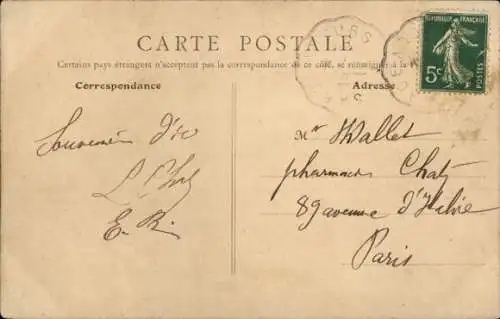 CARTE POSTALE
Certains pays étrangers n'acceptent pas la correspondance de ce côté, se renseigner à la
Correspondance
Adresse
RÉPUBLIQUE FRANÇAISE
5c
POSTES
Souvenir d'ici
E. R.
Mr Wallet
pharmacien Chat
89 avenue d'
Paris